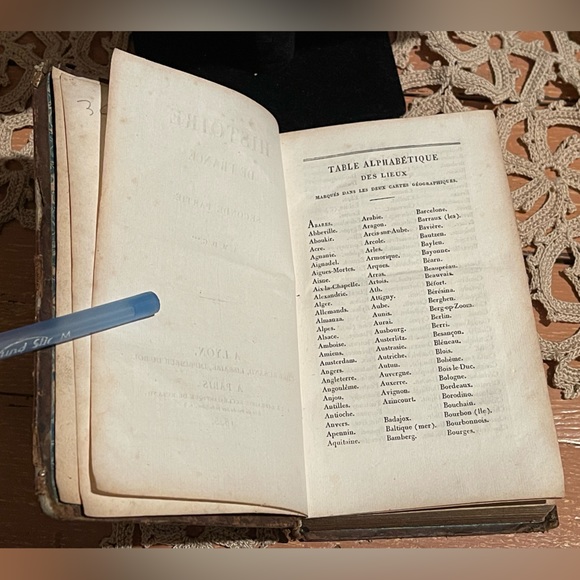 HISTOIRE
DE FRANCE
A LYON,
A PARIS
TABLE ALPHABÉTIQUE
DES LIEUX
MARQUÉS DANS LES DEUX CARTES GÉOGRAPHIQUES.
ABARES.
Abbeville.
Aboukir.
Acre.
Agnanie.
Aignadel.
Aigues-Mortes.
Aisne.
Aix-la-Chapelle.
Alexandrie.
Alger.
Allemands.
Almanza.
Alpes.
Alsace.
Amboise.
Amiens.
Amsterdam.
Angers.
Angleterre.
Angoulême.
Anjou.
Antilles.
Antioche.
Anvers.
Apennin.
Aquitaine.
Arabie.
Aragon.
Arcis-sur-Aube.
Arcole.
Arles.
Armorique.
Arques.
Arras.
Artois.
Ath.
Attigny.
Aube.
Aunis.
Aurai.
Ausbourg.
Austerlitz.
Austrasie.
Autriche.
Autun.
Auvergne.
Auxerre.
Avignon.
Azincourt.
Badajox.
Baltique (mer).
Bamberg.
Barcelone.
Barraux (les).
Bavière.
Bautzen.
Baylen.
Bayonne.
Béarn.
Beaupréau.
Beauvais.
Béfort.
Bérésina.
Berghen.
Berg-op-Zoom.
Berlin.
Berri.
Besançon.
Bléneau.
Blois.
Bohême.
Bois-le-Duc.
Bologne.
Bordeaux.
Borodino.
Bouchain.
Bourbon (Ile).
Bourbonnois.
Bourges.